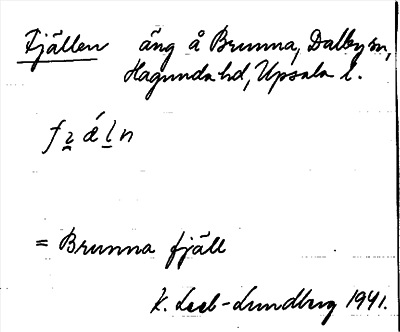 Fjällen äng å Brunna, Dalby sn,
Hagunda hd, Upsala l.
f ꭋ ǽ l n
= Brunna fjäll
K. Leeb-Lundberg 1941.